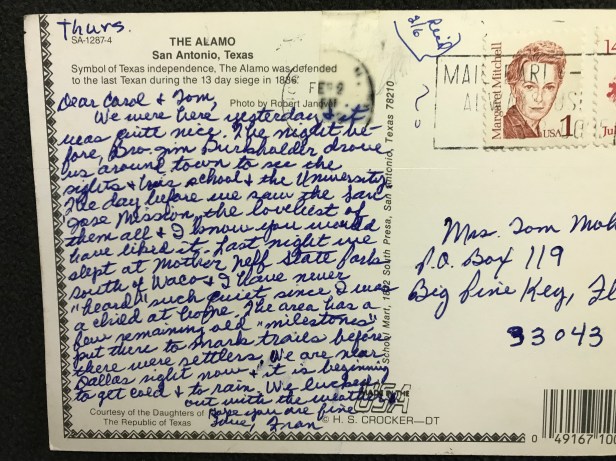 Thurs.
SA-1287-4
THE ALAMO
San Antonio, Texas
Symbol of Texas independence, The Alamo was defended
to the last Texan during the 13 day siege in 1836.
Photo by Robert Jandvi
Dear Carol & Tom,
We were here yesterday & it
was quite nice. The night be-
fore Bro. Jim Burkholder drove
us around town to see the
sights & his school & the University.
The day before we saw the San
Jose Mission, the loveliest of
them all & I know you would
have liked it. Last night we
slept at Mother Neff State Park
south of Waco & I have never
"heard" such quiet since I was
a child at home. The area has a
few remaining old "milestones"
put there to mark trails before
there were settlers. We are near
Dallas right now & it is beginning
to get cold & to rain. We lucked
out with the weather.
Hope you are fine
Love, Fran
Courtesy of the Daughters of
The Republic of Texas
School Mart, 1802 South Presa, San Antonio, Texas 78210
MADE IN THE
USA
© H. S. CROCKER—DT
FEB 9
MAIL EARLY
Margaret Mitchell
USA 1
14
Jul
Mrs. Tom
P.O. Box 119
Big Pine Key, Fl
33043
0 49167 100